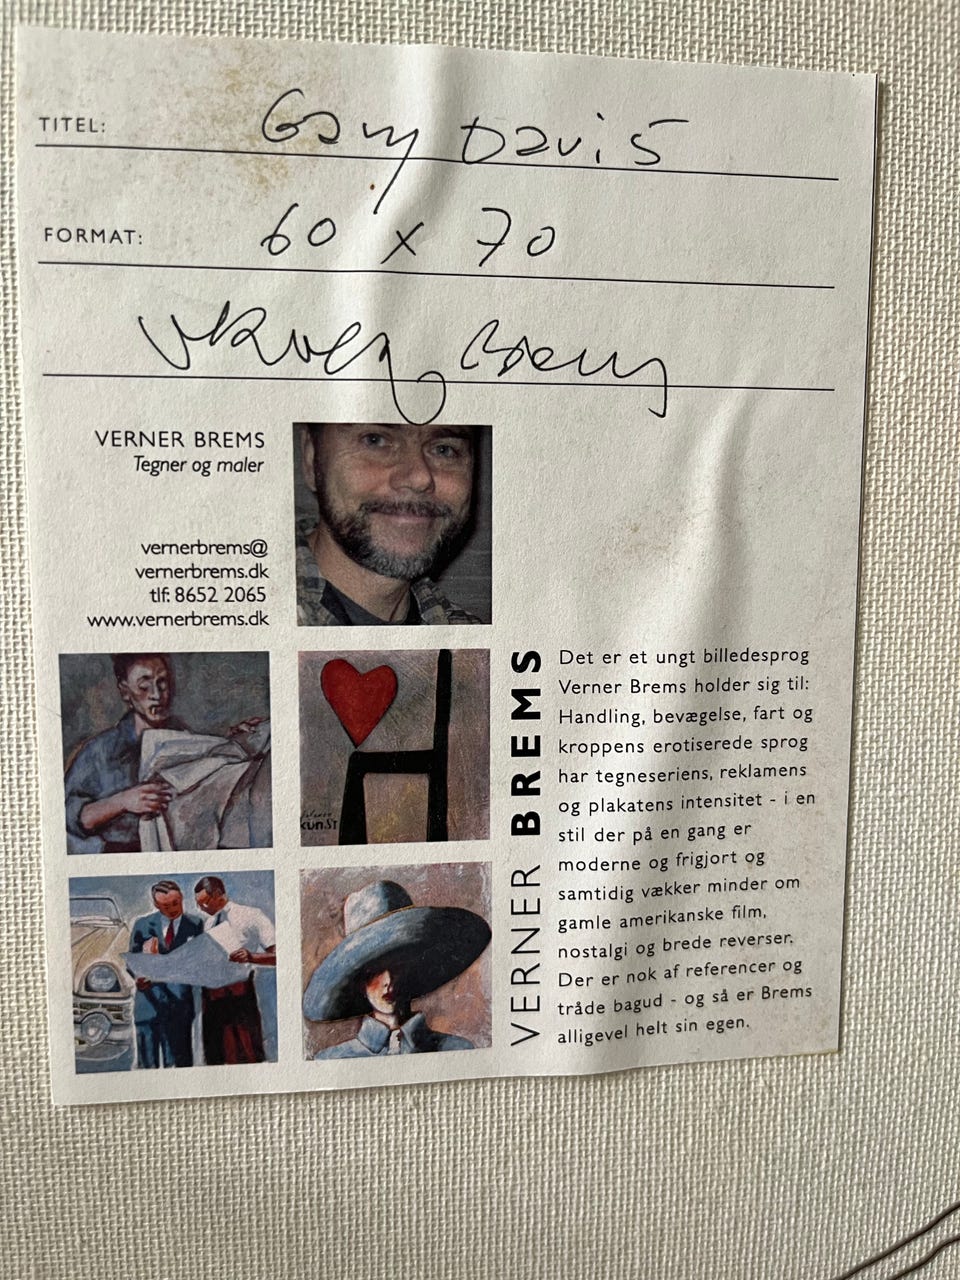 TITEL: Gary Davis
FORMAT: 60 x 70
Verner Brems
VERNER BREMS
Tegner og maler
vernerbrems@
vernerbrems.dk
tlf: 8652 2065
www.vernerbrems.dk
KUNST
VERNER BREMS
Det er et ungt billedesprog
Verner Brems holder sig til:
Handling, bevægelse, fart og
kroppens erotiserede sprog
har tegneseriens, reklamens
og plakatens intensitet - i en
stil der på en gang er
moderne og frigjort og
samtidig vækker minder om
gamle amerikanske film,
nostalgi og brede reverser.
Der er nok af referencer og
tråde bagud - og så er Brems
alligevel helt sin egen.